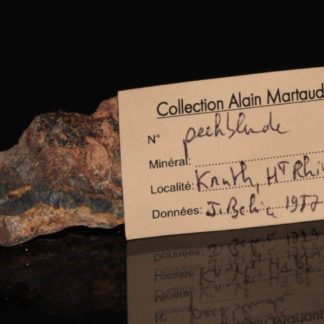 Collection Alain Martaud
N° pechblende
Minéral:
Localité: Kruth, Ht Rhin
Données: J. Behier 1957